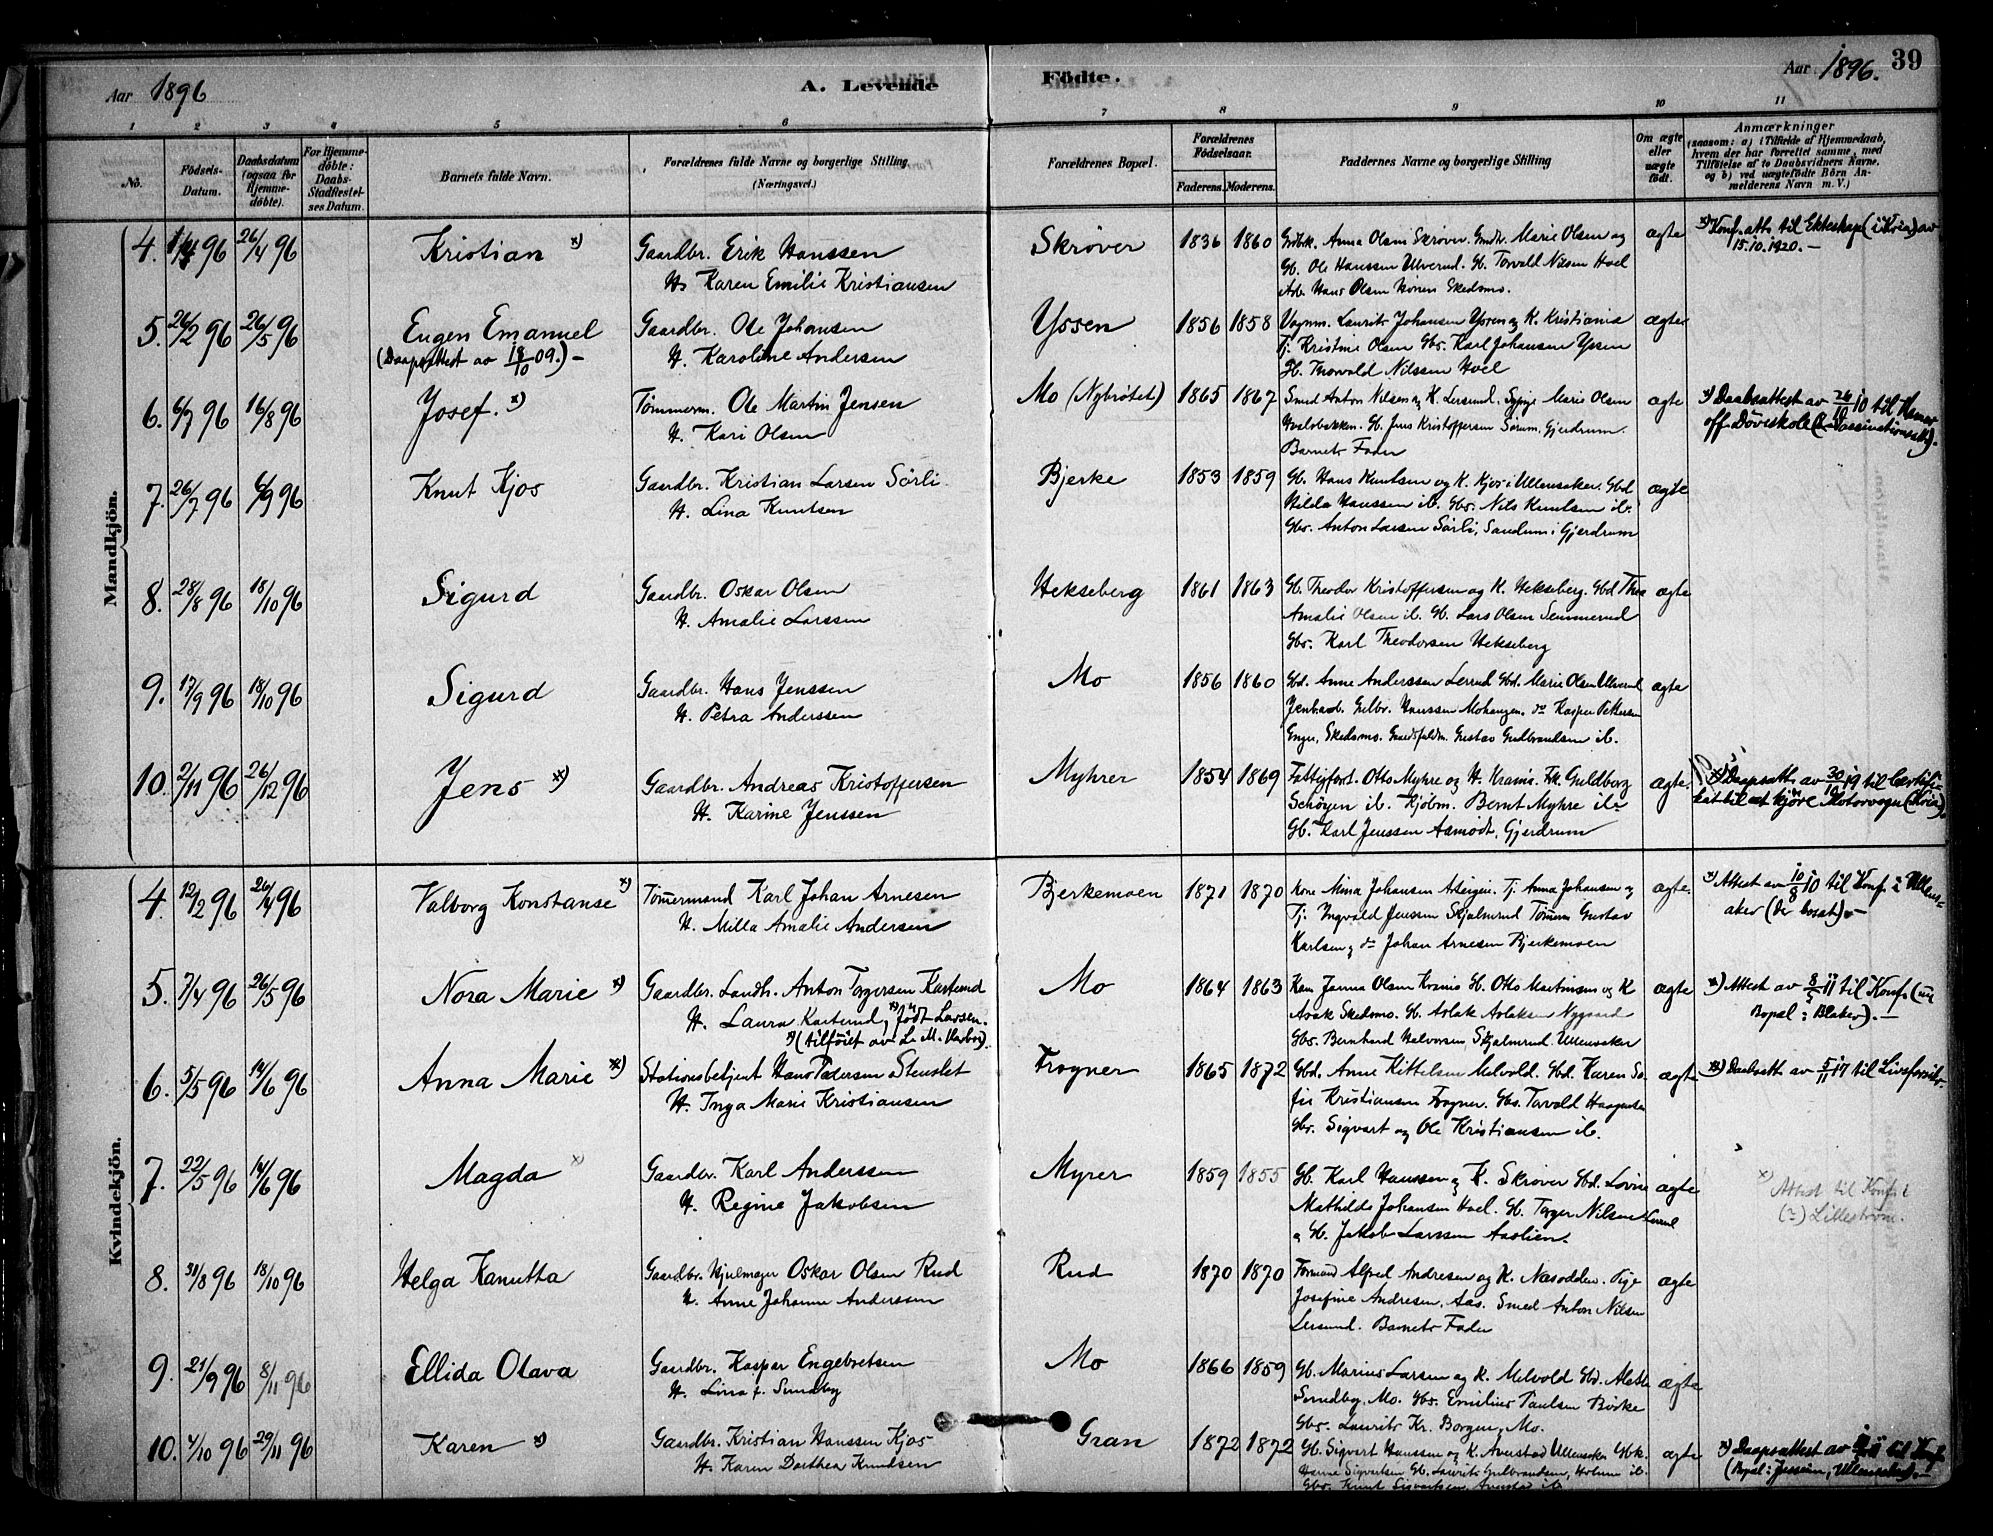 Aar 1896
A. Levende
Födte.
Aar 1896.
39
1 2 3 4 5 6 7 8 9 10 11
No.
Födsels-Datum.
Daabsdatum (ogsaa for Hjemme-döbte).
For Hjemme-döbte: Daabs-Stadfæstel-ses Datum.
Barnets fulde Navn.
Forældrenes fulde Navne og borgerlige Stilling.
(Næringsvei.)
Forældrenes Bopæl.
Forældrenes Födselsaar.
Faderens. Moderens.
Faddernes Navne og borgerlige Stilling
Om ægte eller uægte födt.
Anmærkninger
(saasom: a) i Tilfælde af Hjemmedaab, hvem der har forrettet samme, med Tilföielse af to Daabsvidners Navne, og b) ved uægtefödte Börn Anmelderens Navn m. V.)
Mandkjön.
4. 96 26/4 96 Kristian x) Gaardbr. Erik Hanssen Skrøver 1836 1860 Anna Olsen Skrøver. Marie Olsen og ægte x) Konf. att. til Ekteskap (i Kria) av
H. Karen Emilie Kristiansen Gb. Ole Hanssen Ulverud. Gb. Torvald Nilsen Hoel 15.10.1920. –
Arb. Hans Olsen Skedsmo.
5. 26/2 96 26/5 96 Eugen Emanuel Gaardbr. Ole Johansen Yssen 1856 1858 Vognm. Laurits Johansen Yssen og K. Kristiania ægte
(Daapsattest av 18/10 09.) – H. Karoline Andersen Tj. Kristine Olsen Gbs. Karl Johansen Yssen
Gb. Thorvald Nilssen Hoel
6. 6/7 96 16/8 96 Josef. x) Tømmerm. Ole Martin Jensen Mo (Nybrøtet) 1865 1867 Smed Anton Nilsen og K. Lersund. Marie Olsen ægte x) Daabsattest av 26/10 10 til Hamar
H. Kari Olsen Gb. Jens Kristoffersen Sørum, Gjerdrum. off Døveskole
Barnets Fader
7. 26/7 96 6/9 96 Knut Kjos Gaardbr. Kristian Larsen Sörli Bjerke 1853 1859 Gb. Hans Knutsen og K. Kjos i Ullensaker. Gbd ægte
H. Lina Knutsen Hilda Hanssen ib. Gbs. Nils Knutsen ib.
Gbs. Anton Larssen Sörli, Sandum i Gjerdrum
8. 28/8 96 18/10 96 Sigurd Gaardbr. Oskar Olsen Hekseberg 1861 1863 Gb. Theodor Kristoffersen og K. Hekseberg. Gbd Thea ægte
H. Amalie Larssen Amalie Olsen ib. Gb. Lars Olsen Semmerud
Gbs. Karl Theodorsen Hekseberg
9. 17/9 96 18/10 96 Sigurd Gaardbr. Hans Jenssen Mo 1856 1860 Gbd. Anne Anderssen Lerud Gbd. Marie Olsen Ulverud ægte
H. Petra Anderssen Hanssen Mohaugen. do Kasper Pettersen
Enger, Skedsmo. Gustav Gulbrandsen ib.
10. 2/11 96 26/12 96 Jens x) Gaardbr. Andreas Kristoffersen Myhrer 1854 1869 Fattigforst. Otto Myhre og H. Kranis. Frk. Guldborg ægte. x) Daapsatt. av 30/10 19 til Certifi-
H. Karine Jenssen Schöyen ib. Kjöbm. Bernt Myhre ib. kat til at kjöre Motorvogn (Kria).
Gb. Karl Jenssen Aamodt, Gjerdrum
Kvindekjön.
4. 12/2 96 26/4 96 Valborg Konstanse x) Tömermand Karl Johan Arnesen Bjerkemoen 1871 1870 Kone Mina Johansen Tj. Anna Johansen og ægte. x) Attest av 10/8 10 til Konf. i Ullens-
H. Milla Amalie Andersen Tj. Ingvald Jenssen Skjalmrud Tömm. Gustav aker (der bosat). –
Karlsen og do Johan Arnesen Bjerkemoen
5. 7/4 96 26/5 96 Nora Marie x) Gaardbr. Landh. Anton Torgersen Karterud Mo 1864 1863 Kam Janna Olsen Kranis Gb. Otto Martinsen og K ægte x) Attest av 8/5 11 til Konf. (nu
H. Laura Karterud, x) født Larsen. Arak Skedsmo. Gb. Aslak Aslaksen Nygaard Bopæl: Blaker). –
x) (tilföiet av L. M. ) Gbs. Bernhard Halvorsen, Skjalmrud Ullensaker
6. 5/5 96 14/6 96 Anna Marie x) Stationsbetjent Hans Pedersen Stenslet Frogner 1865 1872 Gbd. Anne Kittelsen Melvold. Gbd. Karen So- ægte x) Daabsatt. av 5/11 17 til Livsforsik.
H. Inga Marie Kristiansen fie Kristiansen Frogner. Gbs. Torvald Haagensen
Gbr. Sigvart og Ole Kristiansen ib.
7. 22/5 96 14/6 96 Magda x) Gaardbr. Karl Anderssen Myrer 1859 1855 Gb. Karl Hanssen og K. Skrøver Gbd. Lovise ægte x) Attest til Konf. i
H. Regine Jakobsen Mathilde Johansen Hoel. Gb. Torger Nilsen Lerud (?) Lilleström.
og Gb. Jakob Larssen Aaslien.
8. 31/8 96 18/10 96 Helga Kanutta Gaardbr. Hjulmager Oskar Olsen Rud Rud 1870 1870 Formand Alfred Andresen og K. Næsodden. Pige ægte
H. Anne Johanne Anderssen Josefine Andresen, Aas. Smed Anton Nilsen
Lersund. Barnets Fader
9. 21/9 96 8/11 96 Ellida Olava Gaardbr. Kasper Engebretsen Mo 1866 1859 Gb. Marius Larsen og K. Melvold Gbd. Alette ægte
H. Lina f. Sundby Sundby, Mo. Gbs. Emilius Paulsen Börke
Gbs. Laurits Kr. Borgen, Mo.
10. 4/10 96 29/11 96 Karen x) Gaardbr. Kristian Hanssen Kjos Gran 1872 1872 Gb. Sigvart Hanssen og K. Aurstad Ullensaker Gbk. ægte x) Daapsattest av til Konf.
H. Karen Dorthea Knudsen Hanne Sigvartsen Gb. Laurits Gulbrandsen, Holum ib. (Bopæl: Jessheim, Ullensaker). –
Gbs. Knut Sigvartsen Aurstad ib